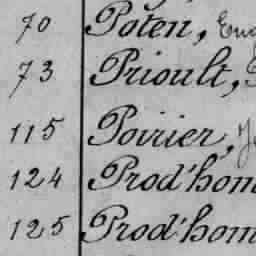 70 Poten,
73 Prioult,
115 Poirier,
124 Prod'hom
125 Prod'hom